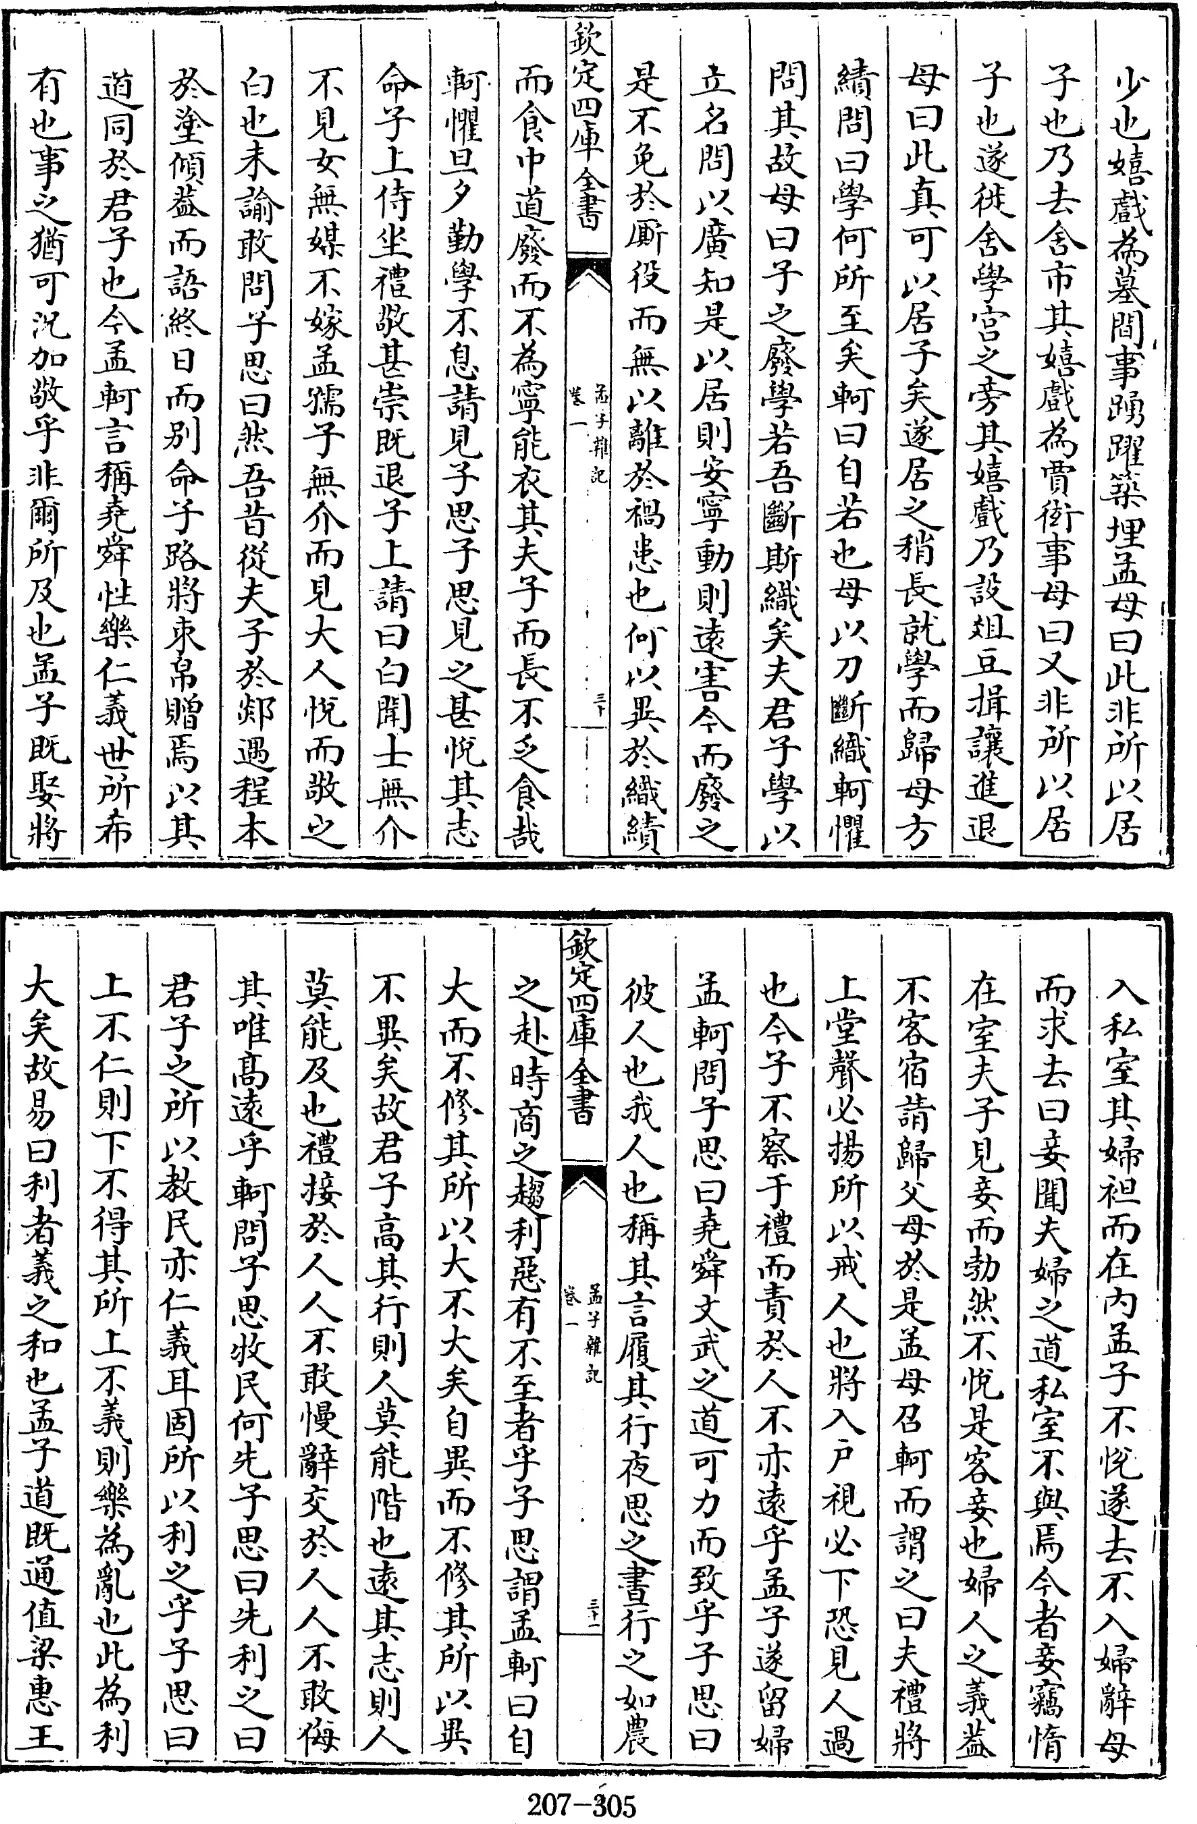 少也嬉戲為墓間事踴躍築埋孟母曰此非所以居
子也乃去舍市其嬉戲為賈衒事母曰又非所以居
子也遂徙舍學宮之旁其嬉戲乃設俎豆揖讓進退
母曰此真可以居子矣遂居之稍長就學而歸母方
績問曰學何所至矣軻曰自若也母以刀斷織軻懼
問其故母曰子之廢學若吾斷斯織矣夫君子學以
立名問以廣知是以居則安寧動則遠害今而廢之
是不免於厮役而無以離於禍患也何以異於織績
欽定四庫全書
孟子雜記
卷一
三十
而食中道廢而不為寧能衣其夫子而長不乏食哉
軻懼旦夕勤學不息請見子思子思見之甚悅其志
命子上侍坐禮敬甚崇既退子上請曰白聞士無介
不見女無媒不嫁孟孺子無介而見大人悅而敬之
白也未諭敢問子思曰然吾昔從夫子於郯遇程本
於塗傾蓋而語終日而別命子路將束帛贈焉以其
道同於君子也今孟軻言稱堯舜性樂仁義世所希
有也事之猶可况加敬乎非爾所及也孟子既娶將
入私室其婦袒而在内孟子不悅遂去不入婦辭母
而求去曰妾聞夫婦之道私室不與焉今者妾竊惰
在室夫子見妾而勃然不悅是客妾也婦人之義蓋
不客宿請歸父母於是孟母召軻而謂之曰夫禮將
上堂聲必揚所以戒人也將入戶視必下恐見人過
也今子不察于禮而責於人不亦遠乎孟子遂留婦
孟軻問子思曰堯舜文武之道可力而致乎子思曰
彼人也我人也稱其言履其行夜思之晝行之如農
欽定四庫全書
孟子雜記
卷一
三十一
之赴時商之趨利惡有不至者乎子思謂孟軻曰自
大而不修其所以大不大矣自異而不修其所以異
不異矣故君子高其行則人莫能階也遠其志則人
莫能及也禮接於人人不敢慢辭交於人人不敢侮
其唯高遠乎軻問子思牧民何先子思曰先利之曰
君子之所以教民亦仁義耳固所以利之乎子思曰
上不仁則下不得其所上不義則樂為亂也此為利
大矣故易曰利者義之和也孟子道既通值梁惠王
207-305